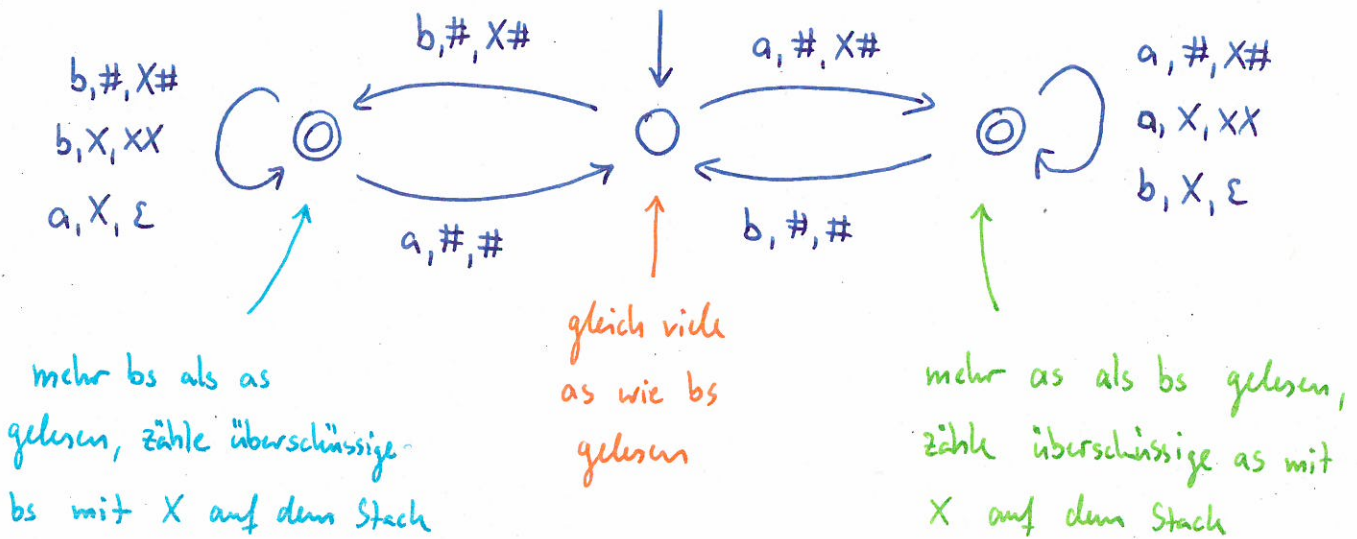 b, #, X#
b, X, XX
a, X, ε
b, #, X#
a, #, #
a, #, X#
b, #, #
a, #, X#
a, X, XX
b, X, ε
mehr bs als as
gelesen, zähle überschüssige
bs mit X auf dem Stack
gleich viele
as wie bs
gelesen
mehr as als bs gelesen,
zähle überschüssige as mit
X auf dem Stack